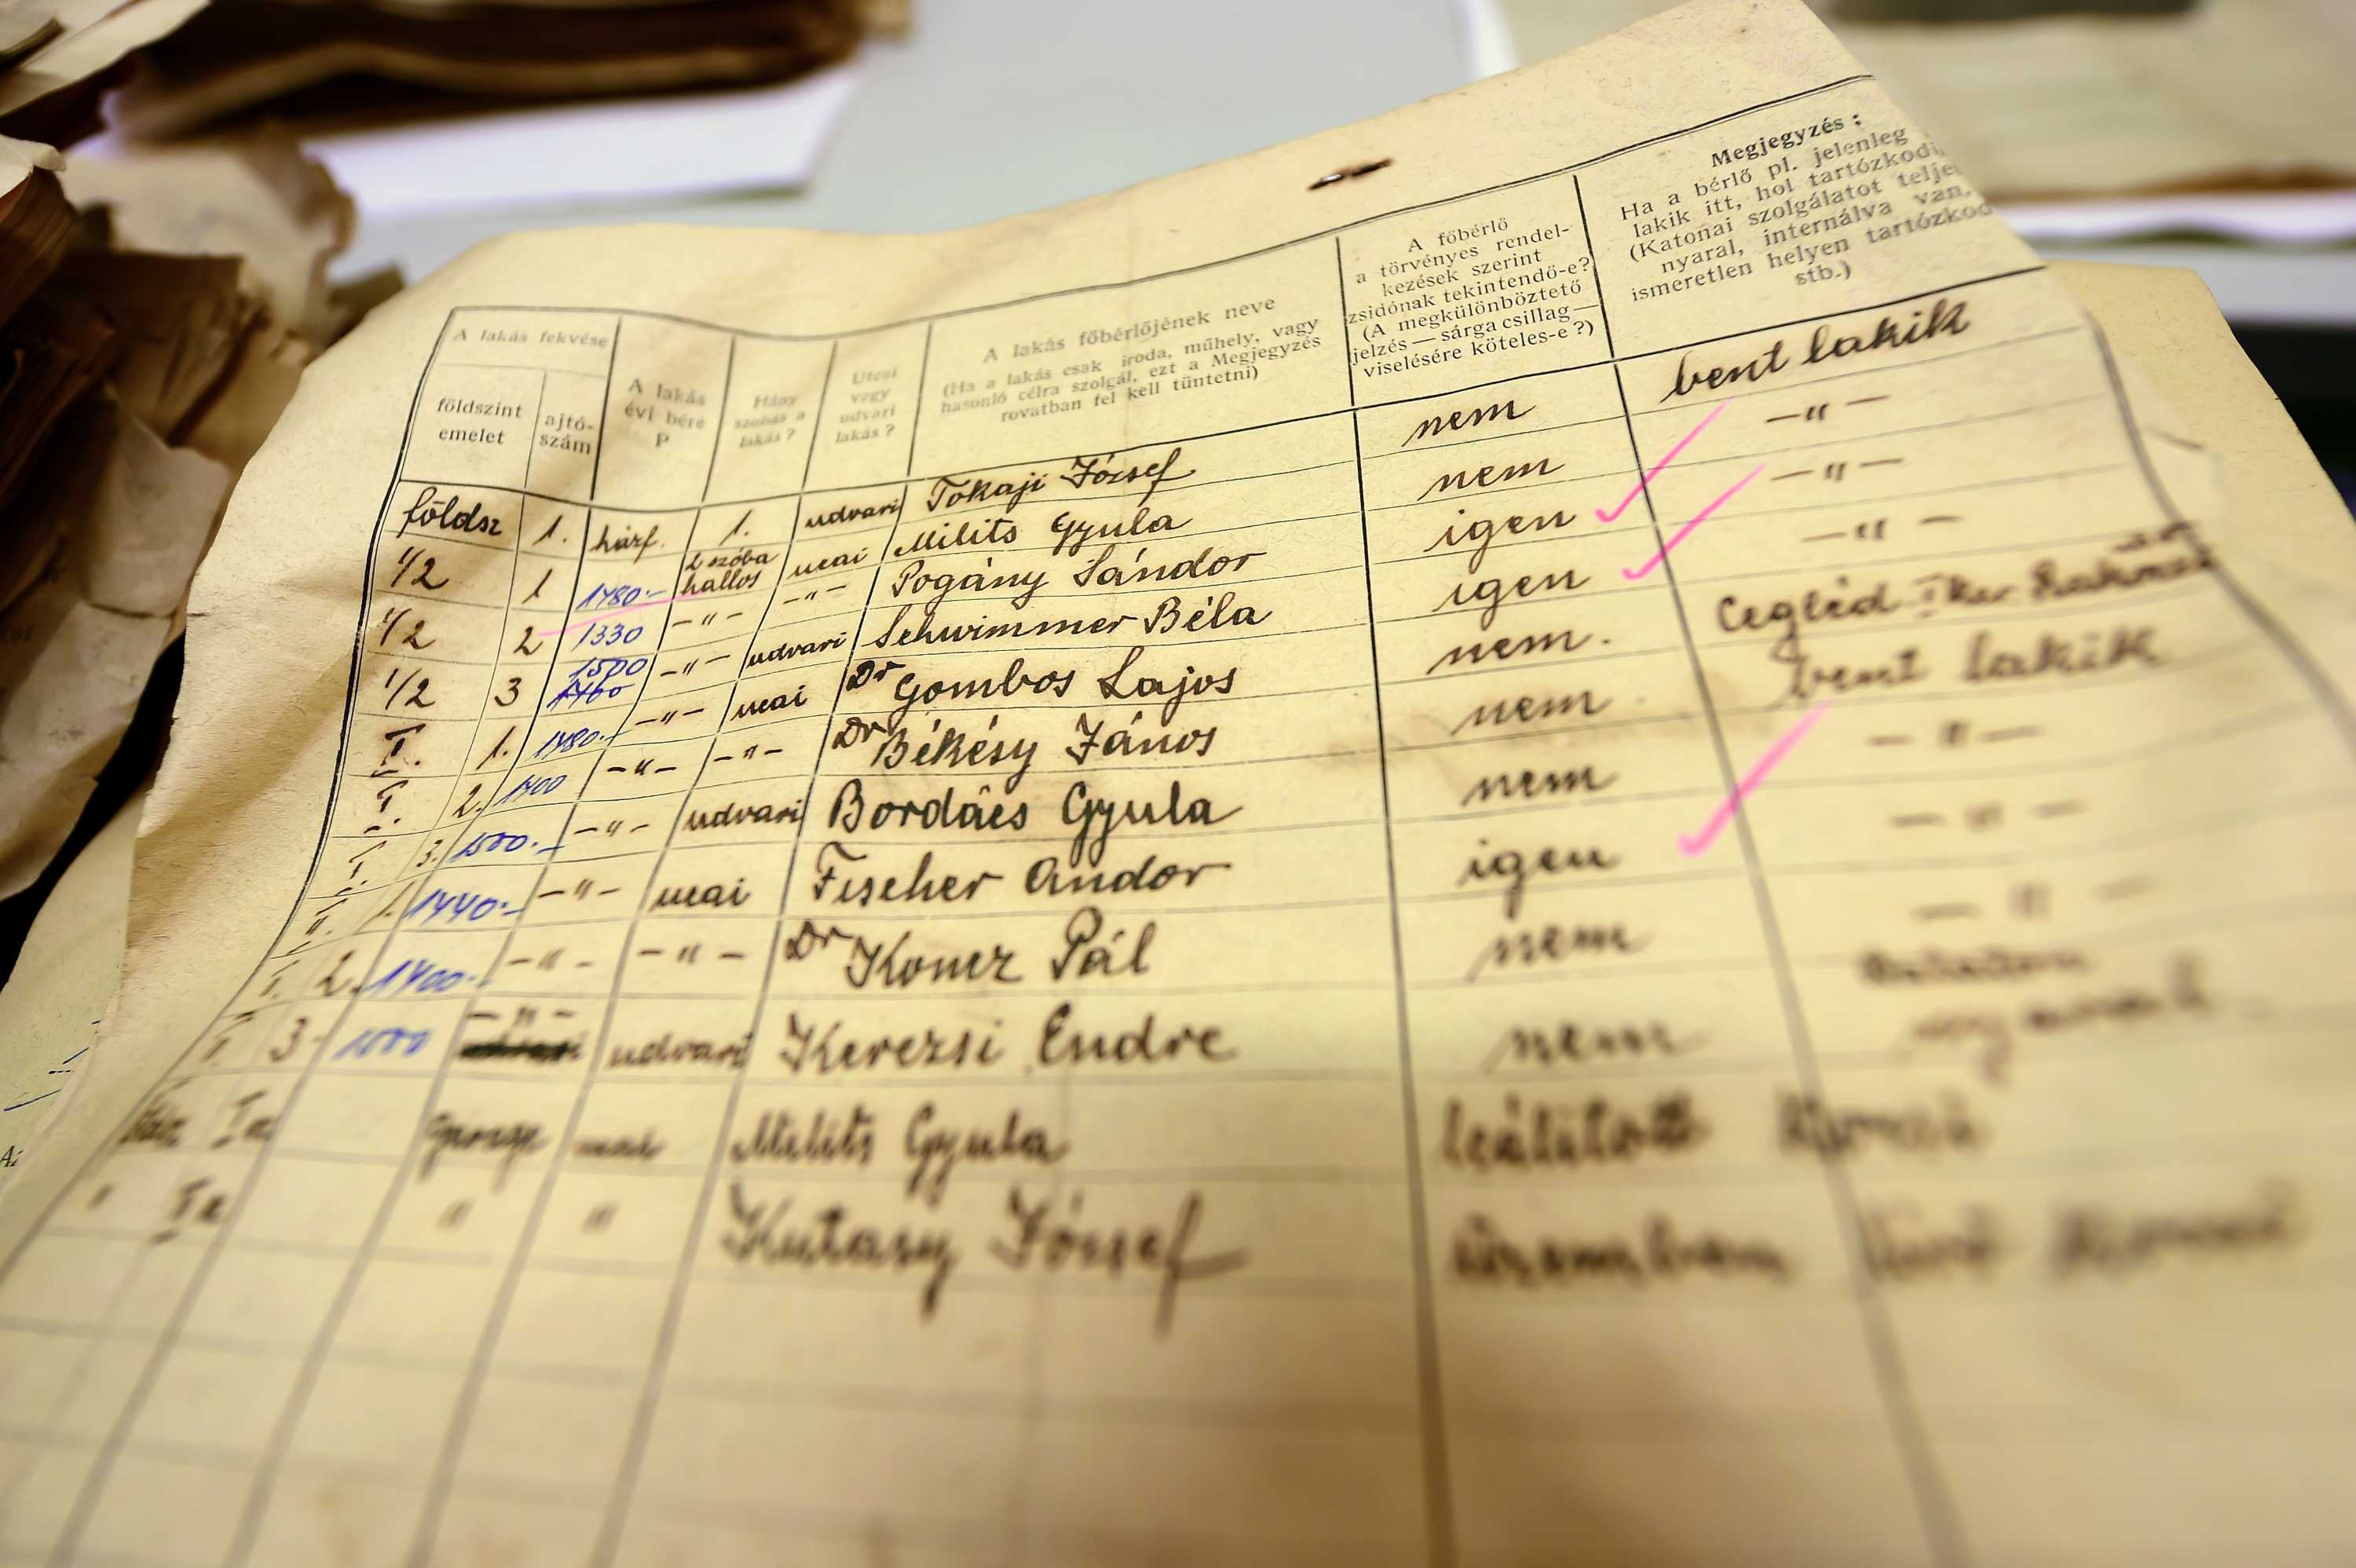 A lakás fekvése
földszint
emelet
ajtó-
szám
A lakás
évi bére
P
Hány
szobás a
lakás?
Utcai
vagy
udvari
lakás?
A lakás főbérlőjének neve
(Ha a lakás csak iroda, műhely, vagy
hasonló célra szolgál, ezt a Megjegyzés
rovatban fel kell tüntetni)
A főbérlő
a törvényes rendel-
kezések szerint
zsidónak tekintendő-e?
(A megkülönböztető
jelzés — sárga csillag —
viselésére köteles-e?)
Megjegyzés:
Ha a bérlő pl. jelenleg
lakik itt, hol tartózkodi
(Katonai szolgálatot telje
nyaral, internálva van,
ismeretlen helyen tartózkod
stb.)
földsz 1. házf. 1. udvari Tokaji József nem bent lakik
1/2 1 1780.- 2 szóba hallos ucai Milits Gyula nem -"-
1/2 2 1330 -"- -"- Pogány Sándor igen -"-
1/2 3 1500 1400 -"- udvari Schwimmer Béla igen -"-
I. 1. 1780.- -"- ucai Dr Gombos Lajos nem. Cegléd
I. 2. 1400 -"- -"- Dr Békésy János nem bent lakik
I. 3. 1500.- -"- udvari Bordács Gyula nem -"-
II. 1. 1440.- -"- ucai Fischer Andor igen -"-
2. 1400.- -"- -"- Dr Koncz Pál nem -"-
3. -"- udvari Kerezsi Endre nem
Garage Milits Gyula leállított
" " Kutasy József üzemben lévő